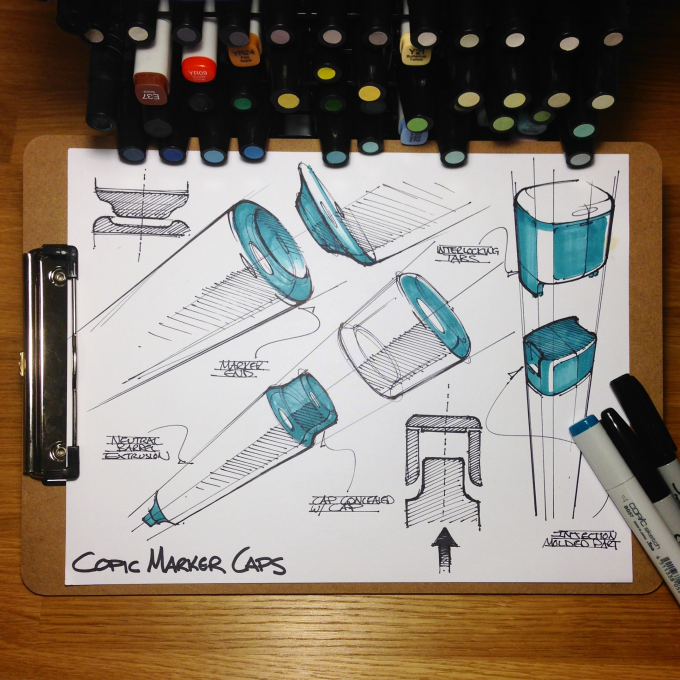 E37
YR09
YR24
Y21
INTERLOCKING
TABS
MARKER
END
NEUTRAL
BARREL
EXTRUSION
CAP CONCEALED
W/ CAP
INJECTION
MOLDED PART
COPIC MARKER CAPS
COPIC